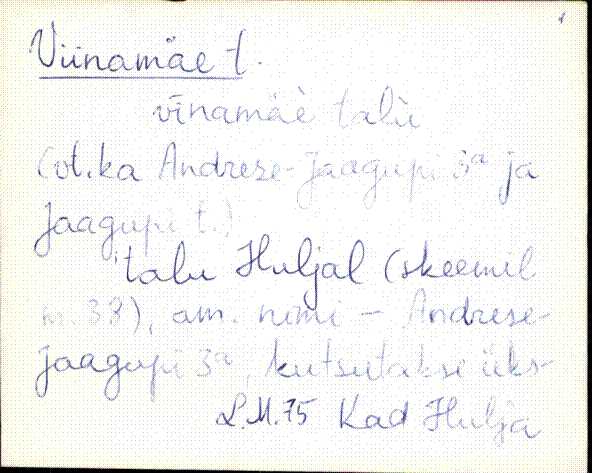 Viinamäe t.
vīnamäè talù
(vt. ka Andrese-Jaagupi 3ª ja
Jaagupi t.)
talu Huljal (skeemil
nr. 33), am. nimi – Andrese-
Jaagupi 3ª, kutsutakse üks-
L.M. 75 Kad Hulja